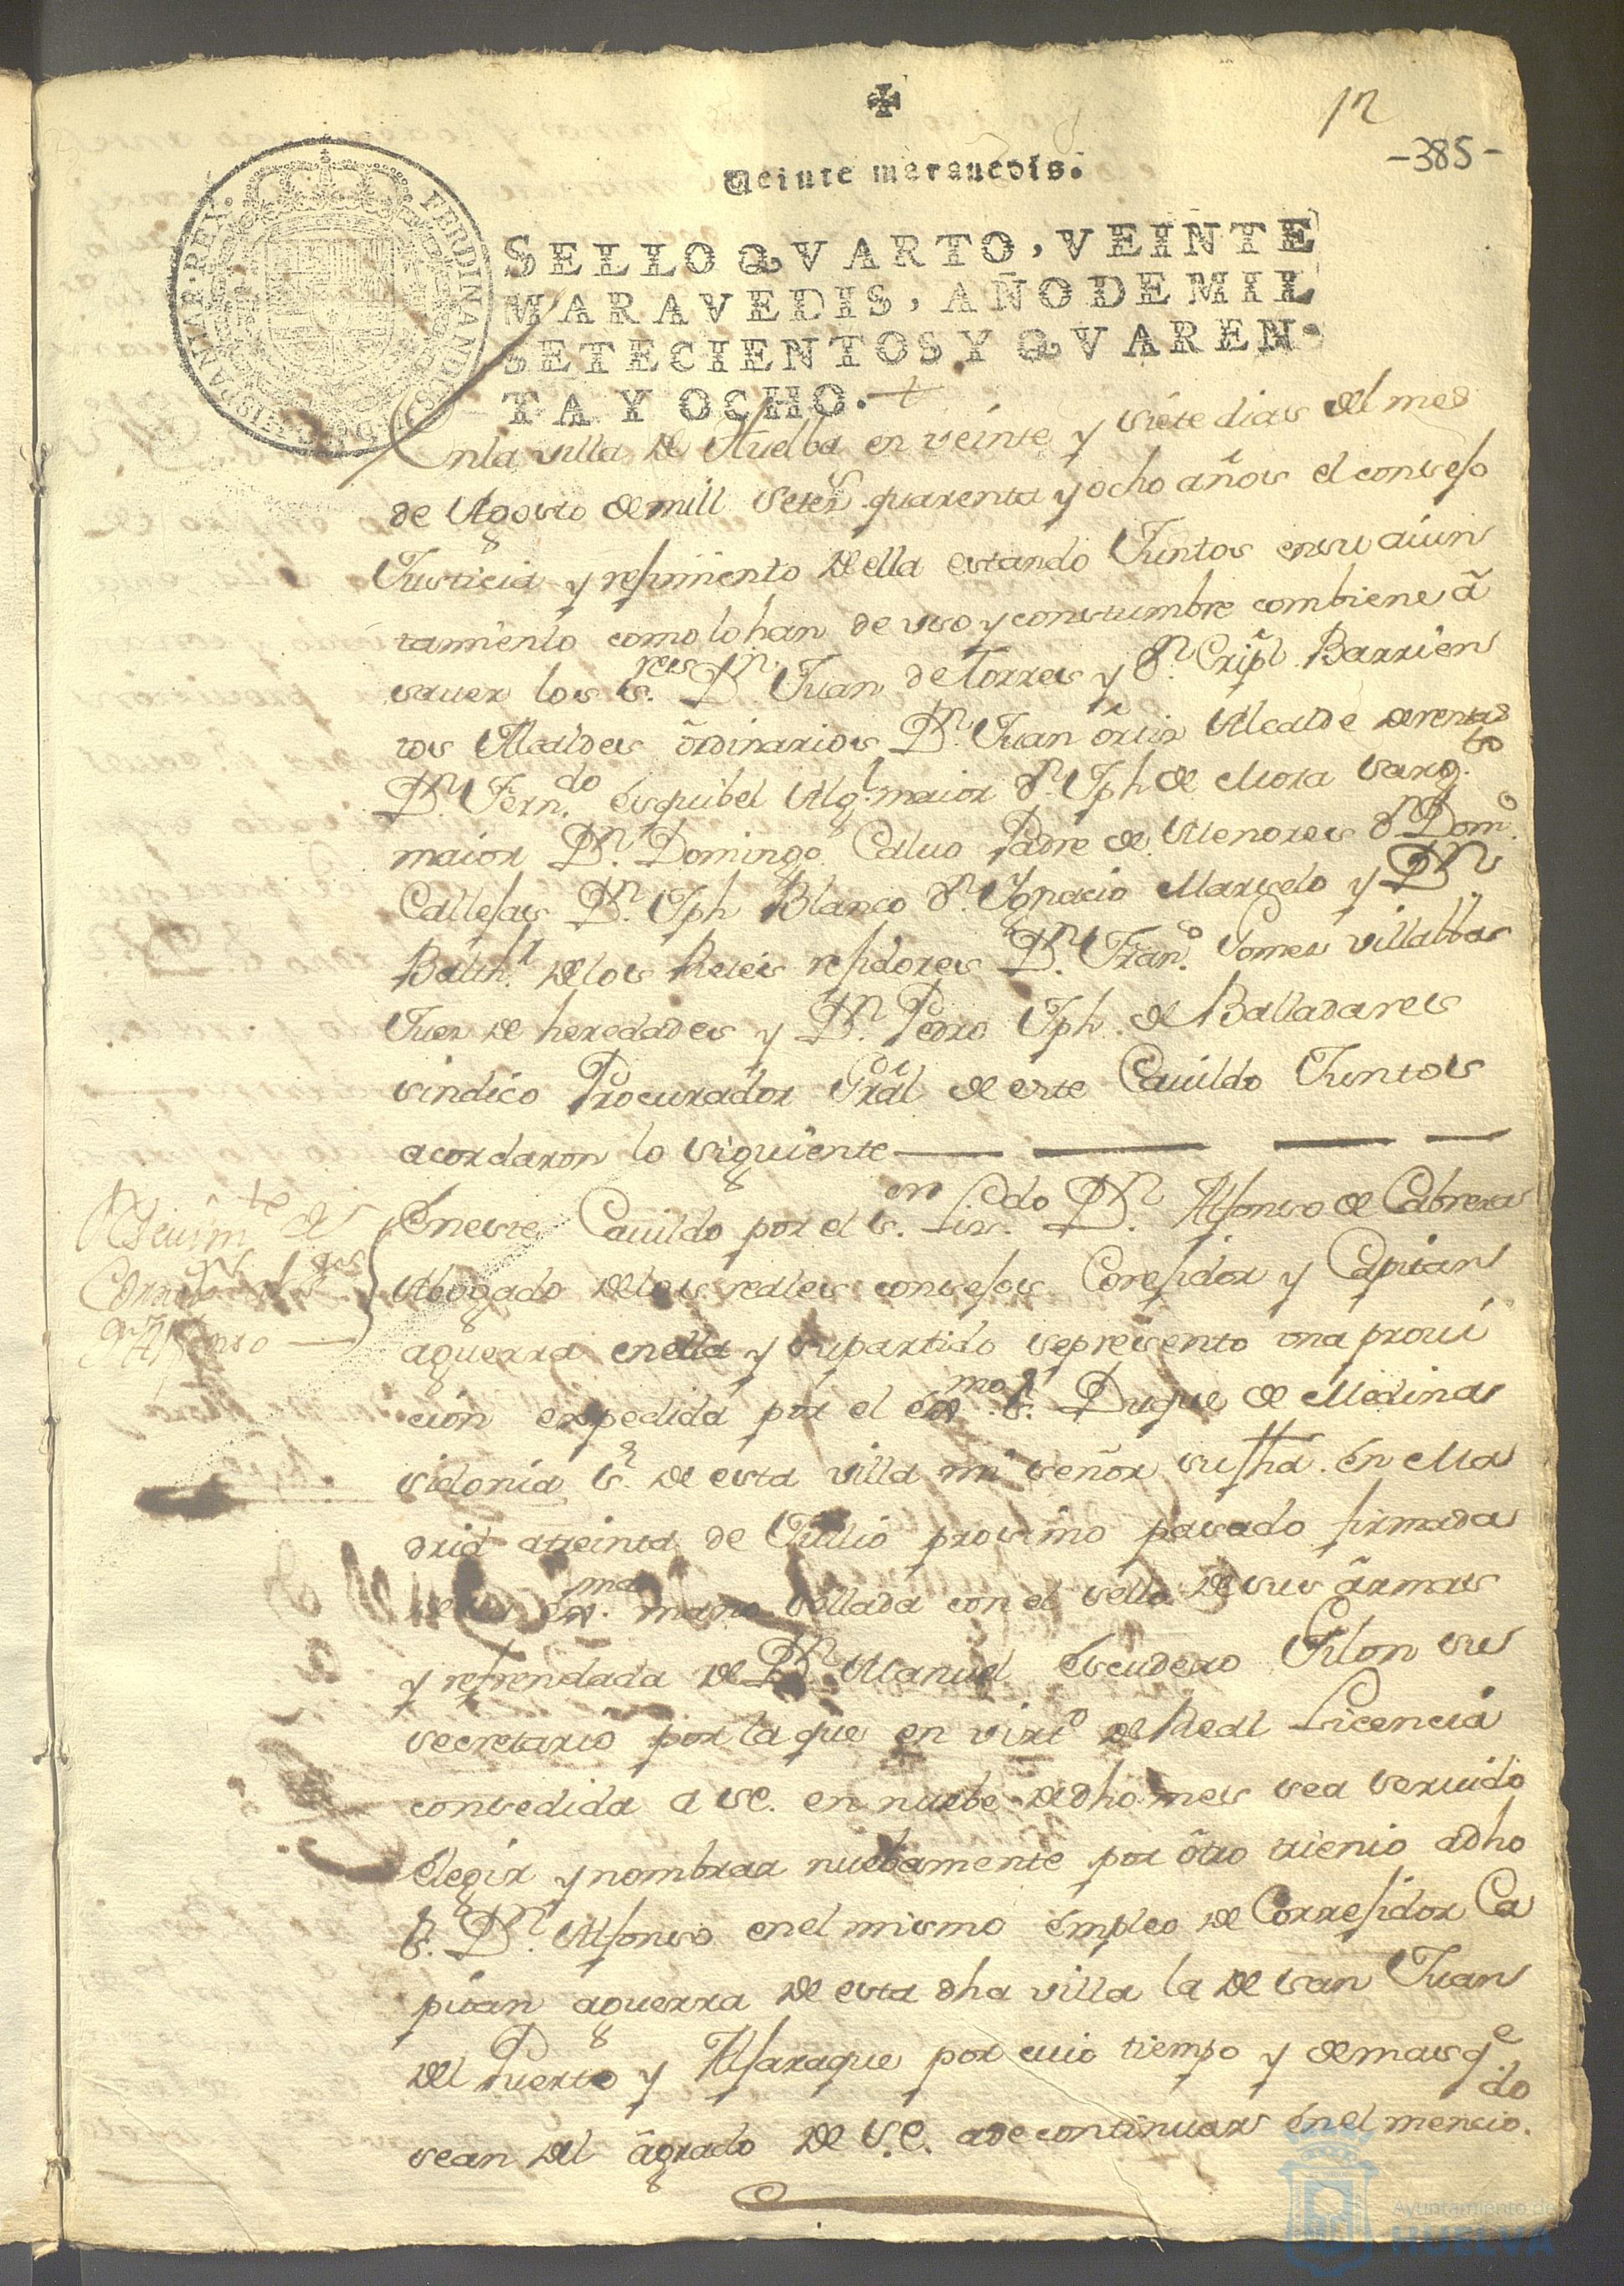 12
-385-
Veinte marauedis.
SELLO QVARTO, VEINTE
MARAVEDIS, AÑO DE MIL
SETECIENTOS Y QVAREN-
TA Y OCHO.
HISPANIAR. REX.
FERDINANDUS VI D.G.
Enla villa de Huelba en veinte y siete dias del mes
de Agosto de mill Setesˢ quarenta y ocho años el consejo
Justicia y rejimiento de ella estando Juntos ensu aiun
tamiento como lo han de uso y constumbre combiene â
sauer los S.ʳᵉˢ Dⁿ. Juan de Torres y dⁿ. Cripl Barrien
tos Alcaldes ôrdinarios Dⁿ. Juan ôrtiz Alcalde de rentas
Dⁿ Fern.ᵈᵒ esquibel Alg.ˡ maior dⁿ. Jph de Mora Sarg.ᵗᵒ
maior Dⁿ. Domingo Caluo Padre de Menores dⁿ Dom.ᵒ
Callejas Dⁿ. Jph Blanco dⁿ. Ygnacio Marselo y Dⁿ.
Balth.ˡ de los Reies rejidores Dⁿ. Fran.ᵒ Gomes villalbas
Juez de heredades y Dⁿ. Pedro Jph de Balladares
sindico Procurador Gral de este Cauildo Juntos
acordaron lo siguiente
Reciuim.ᵗᵒ de
Corre.ᵒʳ
dⁿ Alfonso
Eneste Cauildo por el S.ᵒʳ Lis.ᵈᵒ Dⁿ. Alfonso de Cabrera
Abogado de los reales consejos Corejidor y Capitan
aguerra enella y supartido sepresento una proui
cion expedida por el exᵐᵒ S.ʳ Duque de Medina
sidonia S.ʳ de esta villa mi señor su fha. en Ma
drid atreinta de Jullio prosimo pasado firmada
de su exᵐᵃ. mano sellada con el sello de sus ârmas
y refrendada de Dⁿ Manuel escudero Jilon su
secretario por la que en virtᵈ de Real Licencia
consedida a SE. en nuebe de dho mes sea seruido
elegir y nombrar nuebamente por ôtro trienio adho
S.ʳ Dⁿ. Alfonso enel mismo empleo de Correjidor Ca
pitan aguerra de esta dha villa la de san Juan
del Puerto y Alfaraque por cuio tiempo y demas q.ᵉ
sean del âgrado de S.E. ade continuar en el mencio.ᵈᵒ
Ayuntamiento de
HUELVA